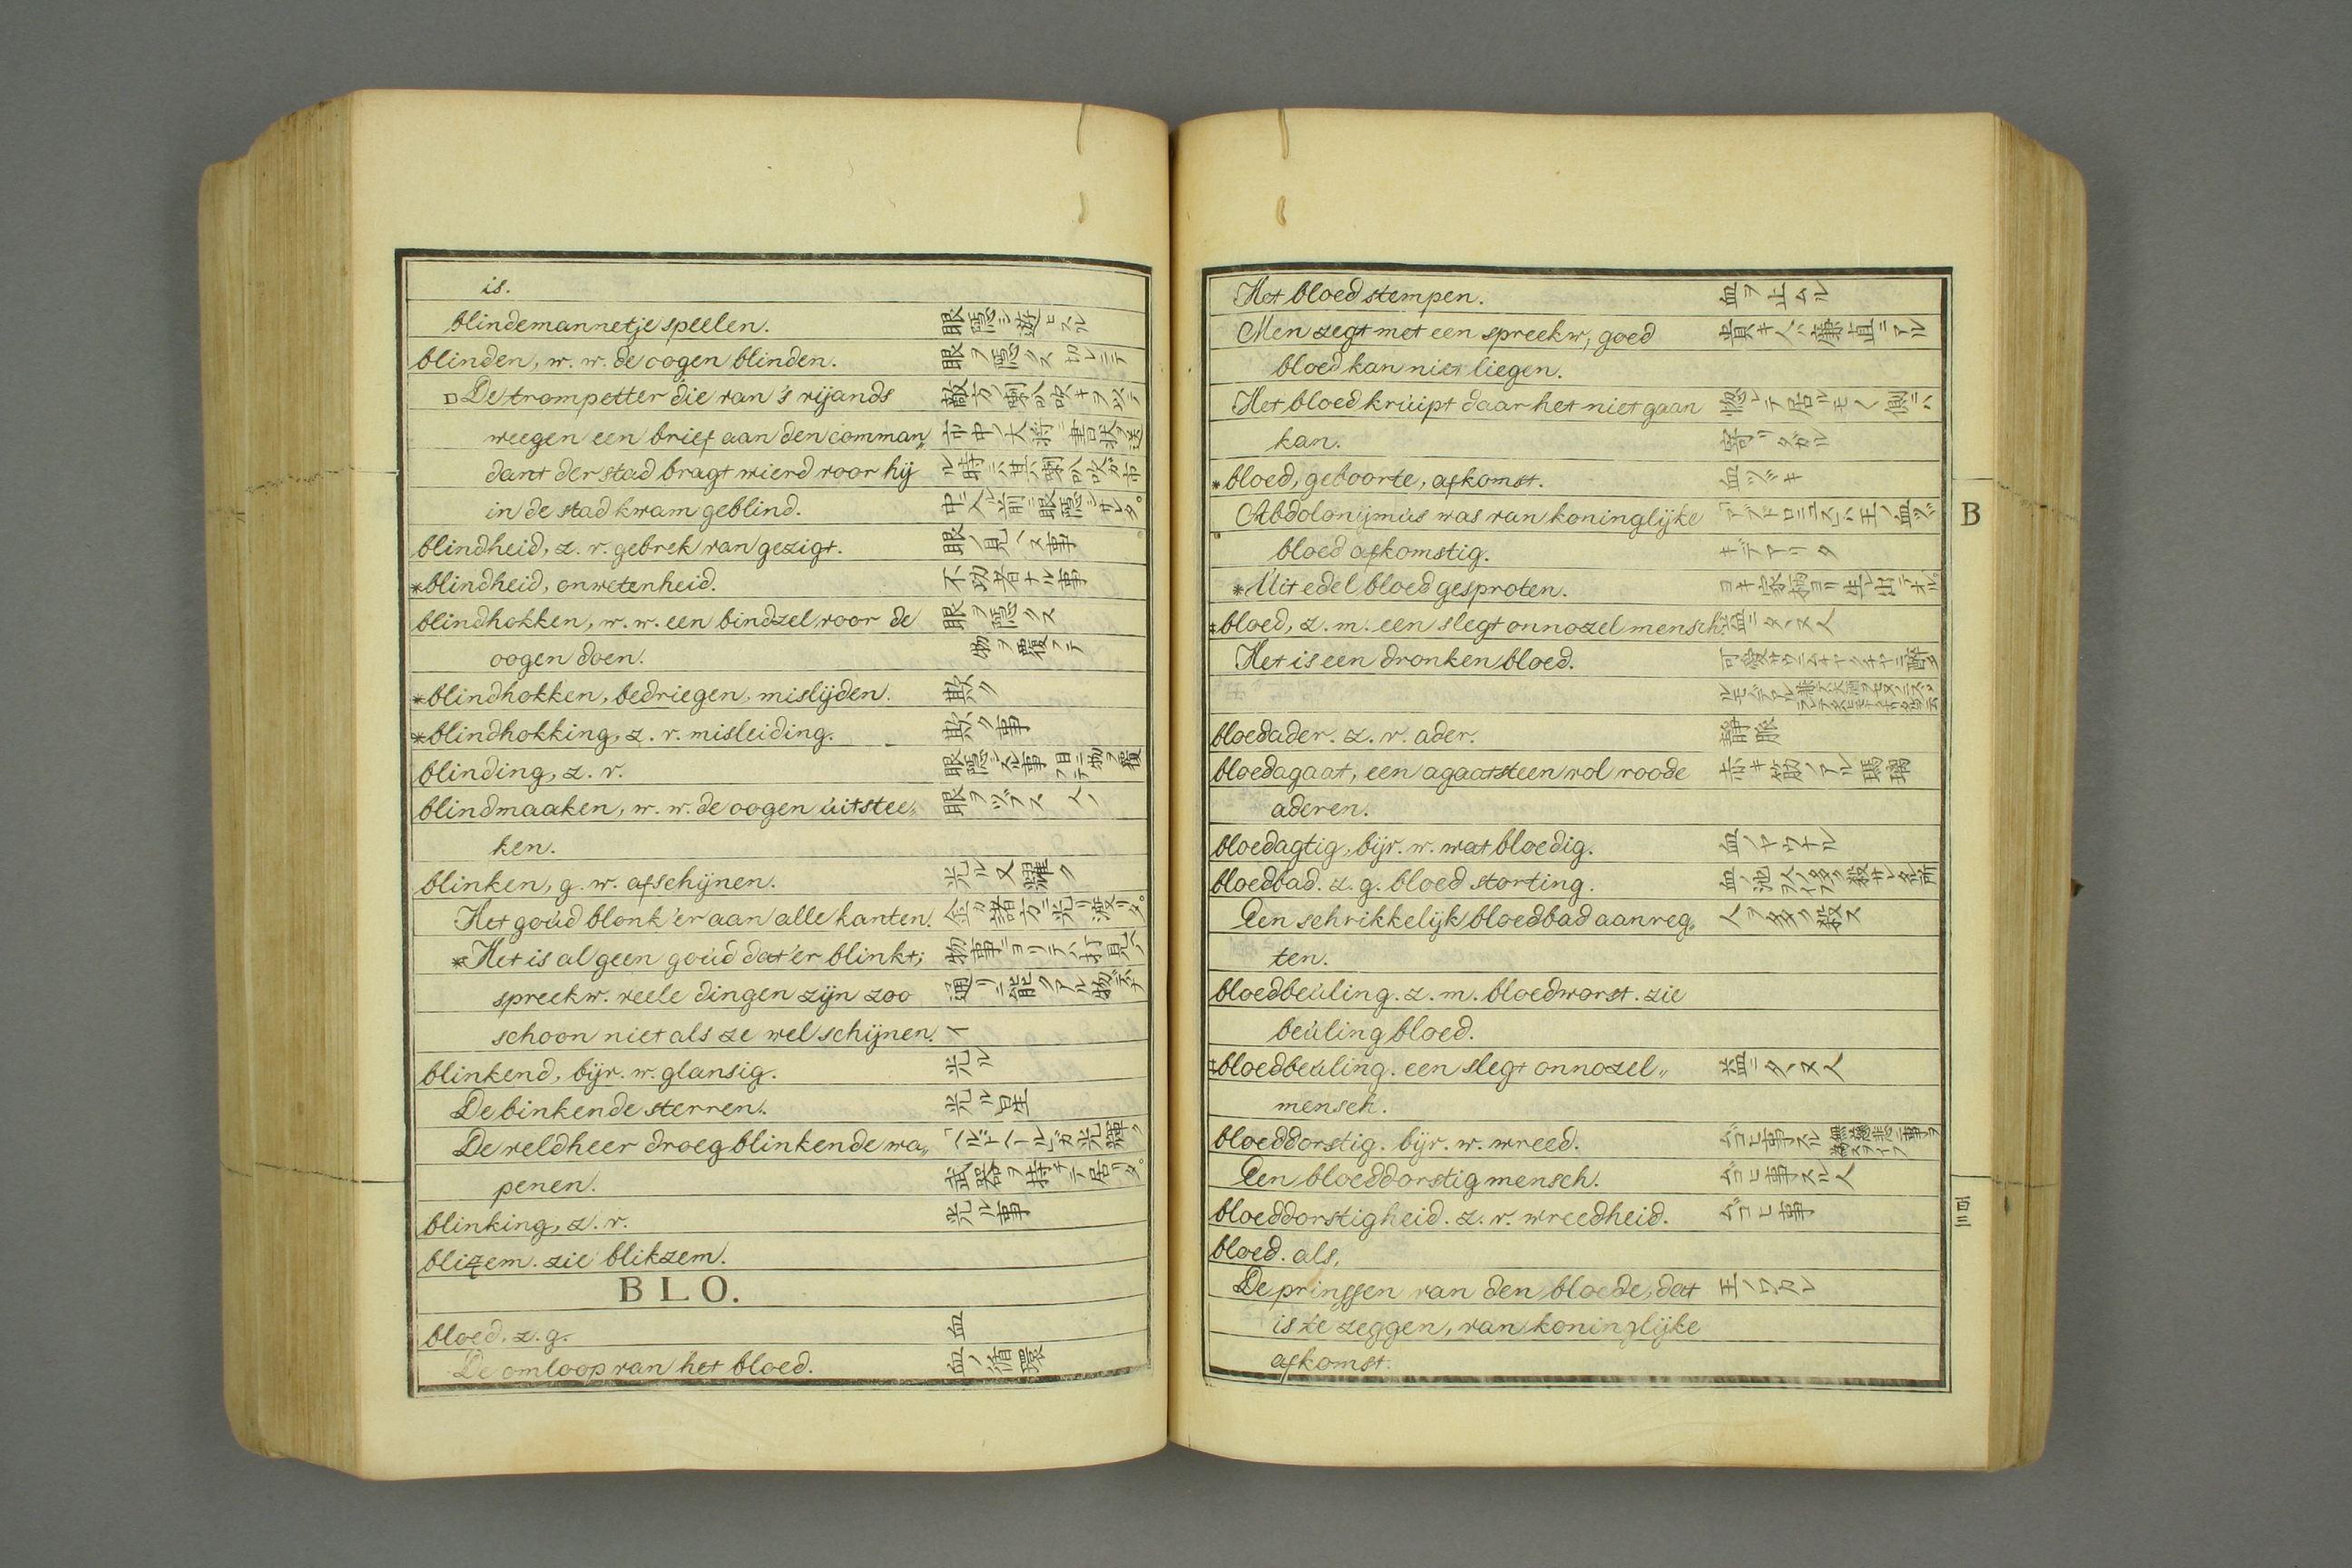 is.
blindemannetje speelen. 眼隠シ遊ヒスル
blinden, w. w. de oogen blinden. 眼ヲ隠クス
De trompetter die van 's vijands 敵方ノ喇叭吹
weegen een brief aan den comman„ 市中ノ大将ニ書状ヲ送
dant der stad bragt wierd voor hij ル時ニ其喇叭吹ガ市
in de stad kwam geblind. 中ニ入ル前ニ眼隠シサレタ。
blindheid, z. v. gebrek van gezigt. 眼ノ見ヘヌ事
*blindheid, onwetenheid. 不功者ナル事
blindhokken, w. w. een bindzel voor de 眼ヲ隠クス
oogen doen. 物ヲ覆フテ
*blindhokken, bedriegen, mislijden. 欺ク
*blindhokking, z. v. misleiding. 欺ク事
blinding, z. v. 眼隠シスル事 目ニ物ヲ覆フテ
blindmaaken, w. w. de oogen úitstee„ 眼ヲツブス
ken.
blinken, g. w. afschijnen. 光ル又耀ク
Het goúd blonk 'er aan alle kanten. 金ガ諸方ニ光リ渡リタ。
*Het is al geen goúd dat 'er blinkt; 物事ヨリテハ打見ヘ
spreekw. veele dingen zijn zoo 通リニ能クアル物デナ
schoon niet als ze wel schijnen. イ
blinkend, bijv. w. glansig. 光ル
De binkende sterren. 光ル星
De veldheer droeg blinkende wa„ 光輝ク
penen. 武器ヲ持チテ居リタ。
blinking, z. v. 光ル事
blizem. zie blikzem.
BLO.
bloed. z. g. 血
De omloop van het bloed. 血ノ循環
Het bloed stempen. 血ヲ止ムル
Men zegt met een spreekw; goed 貴キ人ハ廉直ニアル
bloed kan niet liegen.
Het bloed krúipt daar het niet gaan 惚レテ居ルモノ側ニハ
kan. 寄リタガル
*bloed, geboorte, afkomst. 血ツヾキ
Abdolonijmús was van koninglijke アブドロニミユスハ王ノ血ツヾ
bloed afkomstig. キデアリタ
*Uit edel bloed gesproten. ヨキ家柄ヨリ生レ出テオル。
‡bloed, z. m. een slegt onnozel mensch. 益ニタヽヌ人
Het is een dronken bloed.
bloedader. z. v. ader. 静脈
bloedagaat, een agaatsteen vol roode 赤キ筋ノアル瑪瑙
aderen.
bloedagtig, bijv. w. wat bloedig. 血ノヤウナル
bloedbad. z. g. bloed storting. 血ノ池 人ノ多ク殺サレタル所ヲイフ
Een schrikkelijk bloedbad aanreg„ 人ヲ多ク殺ス
ten.
bloedbeúling. z. m. bloedworst. zie
beúling bloed.
‡bloedbeúling. een slegt onnozel„ 益ニタヽヌ人
mensch.
bloeddorstig. bijv. w. wreed. ムゴヒ事スル
Een bloeddorstig mensch. ムゴヒ事スル人
bloeddorstigheid. z. v. wreedheid. ムゴヒ事
bloed. als,
De prinssen van den bloede, dat 王ノワカレ
is te zeggen, van koninglijke
afkomst.
B